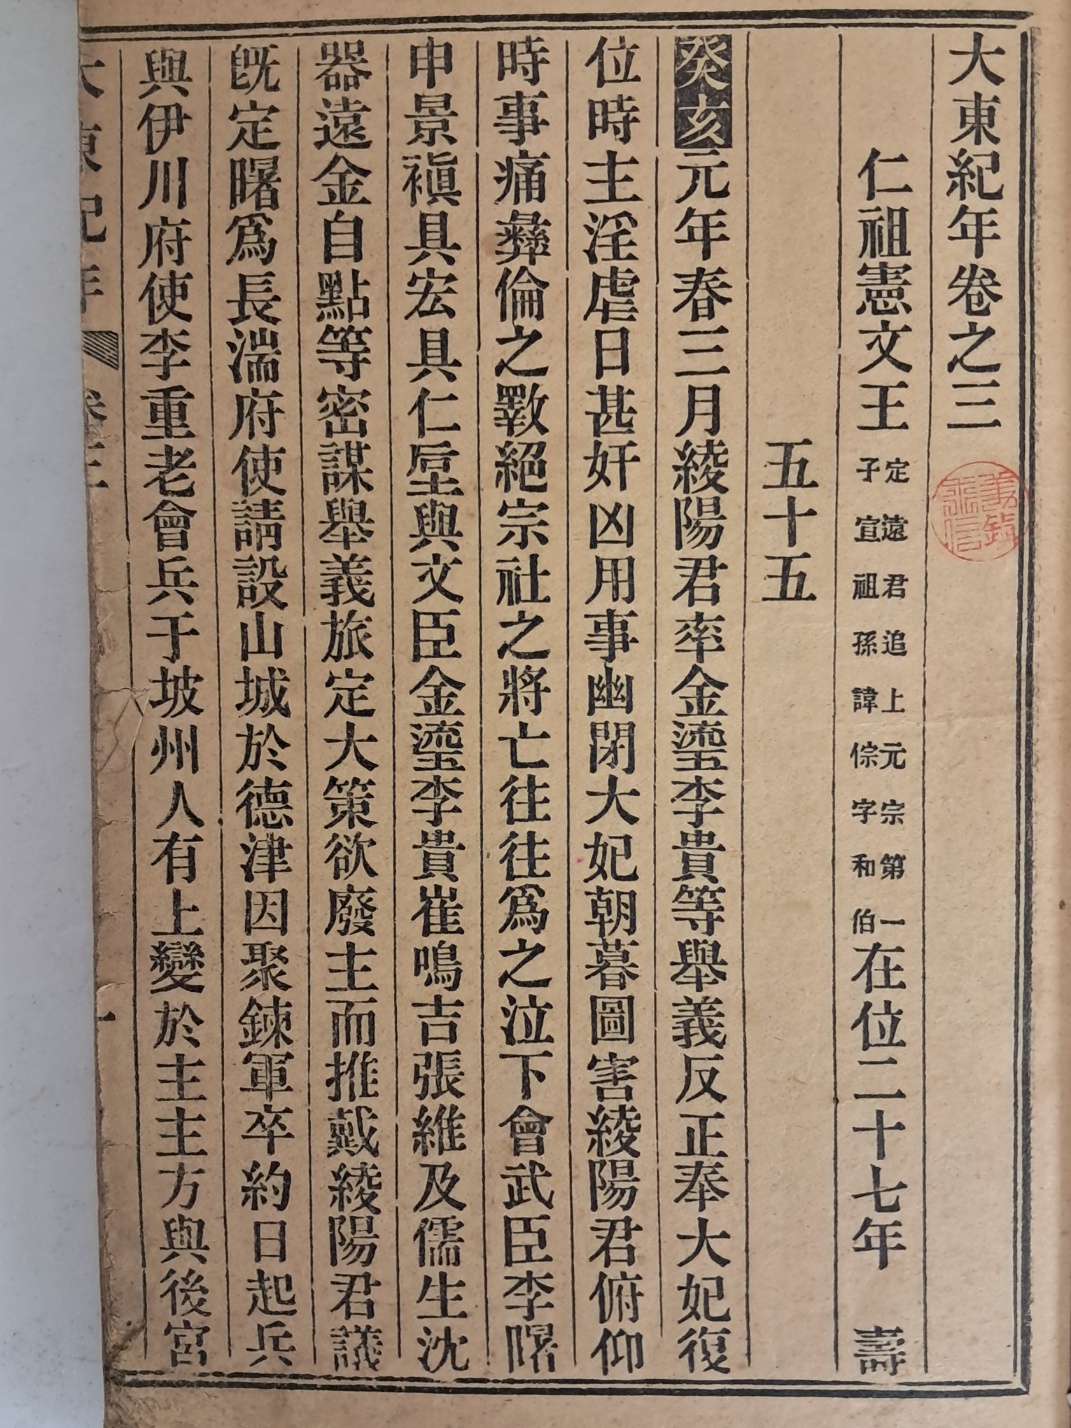 大東紀年卷之三
仁祖憲文王定遠君追上元宗第一子宣祖孫諱倧字和伯在位二十七年 壽
五十五
癸亥元年春三月綾陽君率金瑬李貴等舉義反正奉大妃復
位時主淫虐日甚奸凶用事幽閉大妃朝暮圖害綾陽君俯仰
時事痛彝倫之斁絕宗社之將亡往往爲之泣下會武臣李曙
申景禛具宏具仁垕與文臣金瑬李貴崔鳴吉張維及儒生沈
器遠金自點等密謀舉義旅定大策欲廢主而推戴綾陽君議
旣定曙爲長湍府使請設山城於德津因聚鍊軍卒約日起兵
與伊川府使李重老會兵于坡州人有上變於主主方與後宮
大東紀年 卷三 一